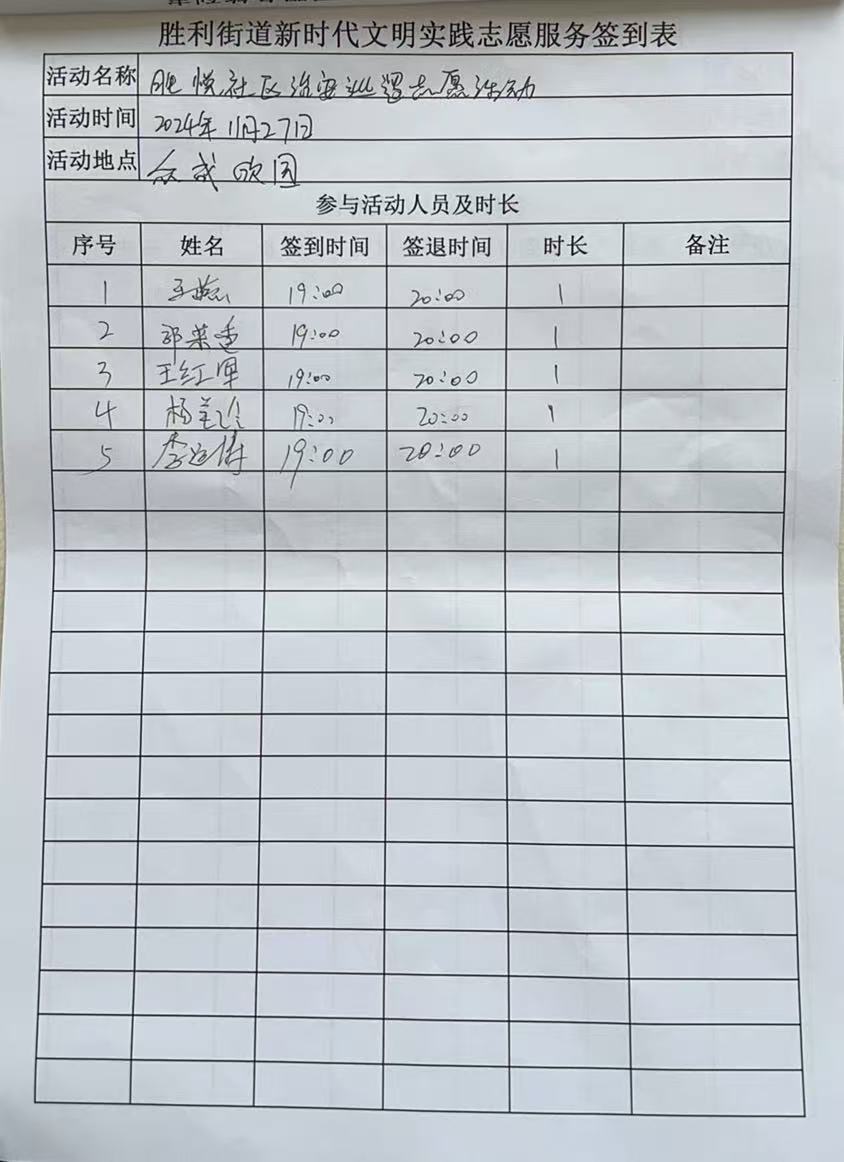 胜利街道新时代文明实践志愿服务签到表
活动名称 胜悦社区治安巡逻志愿活动
活动时间 2024年11月27日
活动地点 众成欧园
参与活动人员及时长
序号 姓名 签到时间 签退时间 时长 备注
1 王燕 19:00 20:00 1
2 19:00 20:00 1
3 王红军 19:00 20:00 1
4 杨 19:00 20:00 1
5 李 19:00 20:00 1